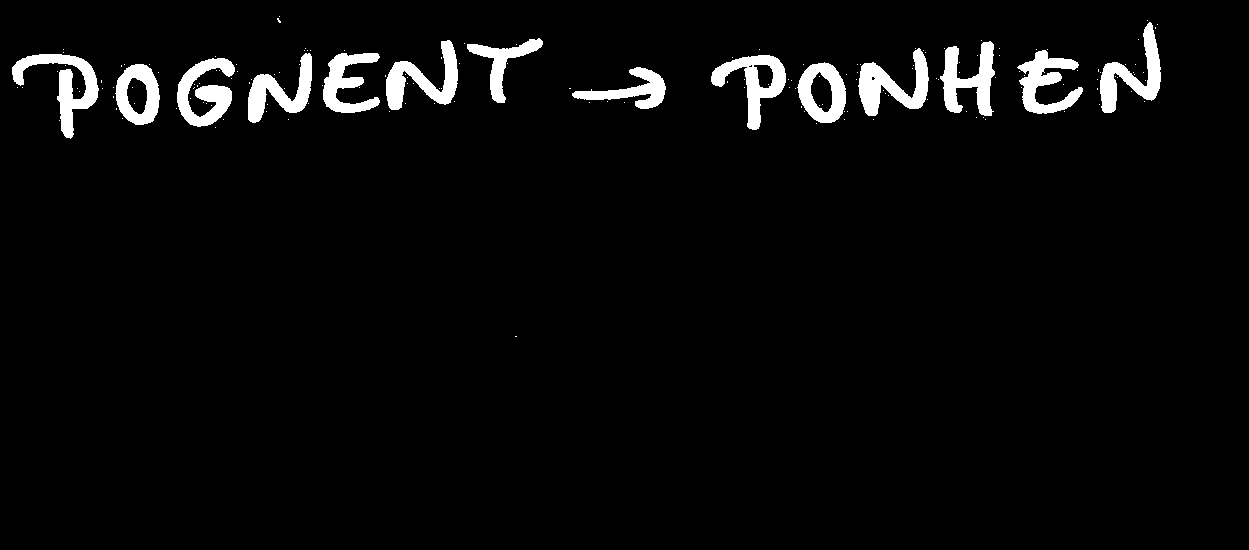 POGNENT → PONHEN